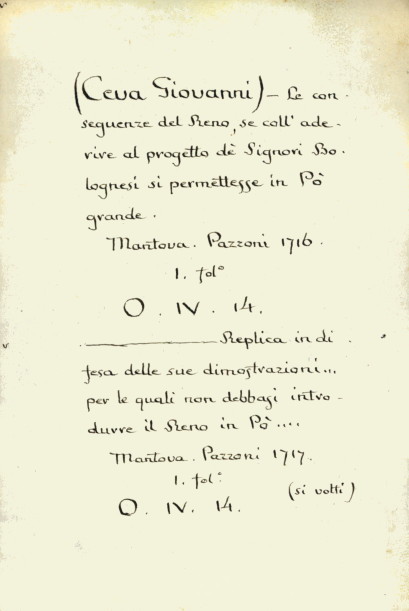 (Ceva Giovanni) – Le con-
seguenze del Reno, se coll' ade-
rire al progetto dè Signori Bo-
lognesi si permettesse in Pò
grande.
Mantova. Pazzoni 1716.
1. folº
O. IV. 14.
——— Replica in di
fesa delle sue dimostrazioni...
per le quali non debbasi intro-
durre il Reno in Pò....
Mantova. Pazzoni 1717.
1. folº
(si volti)
O. IV. 14.